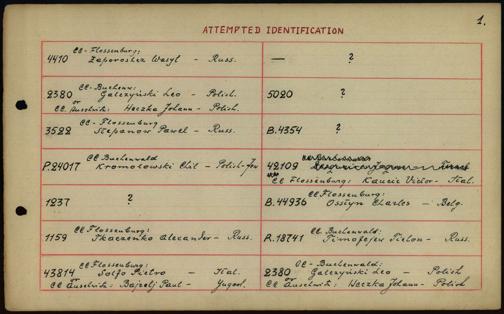 1.
ATTEMPTED IDENTIFICATION
CC-Flossenburg:
4410 Zaporoshez Wasyl - Russ.
— ?
CC-Buchenw:
2380 Galczyński Leo - Polish
or
CC Auschwitz: Heczka Johann - Polish.
5020 ?
CC-Flossenburg
3522 Stepanow Pawel - Russ.
B.4354 ?
CC Buchenwald
P.24017 Kromolowski Chil - Polish-Jew
42109
CC Flossenburg: Kaucic Victor - Ital.
1237 ?
CC Flossenburg:
B.44936 Osslyn Charles - Belg.
CC Flossenburg:
1159 Tkaczenko Alexander - Russ.
CC. Buchenwald:
R.18741 Timofejew Tichon - Russ.
CC Flossenburg:
43814 Solfo Pietro - Ital.
or
CC Auschwitz: Bajzelj Paul - Yugosl.
CC - Buchenwald:
2380 Galczyński Leo - Polish
or
CC Auschwitz: Heczka Johann - Polish